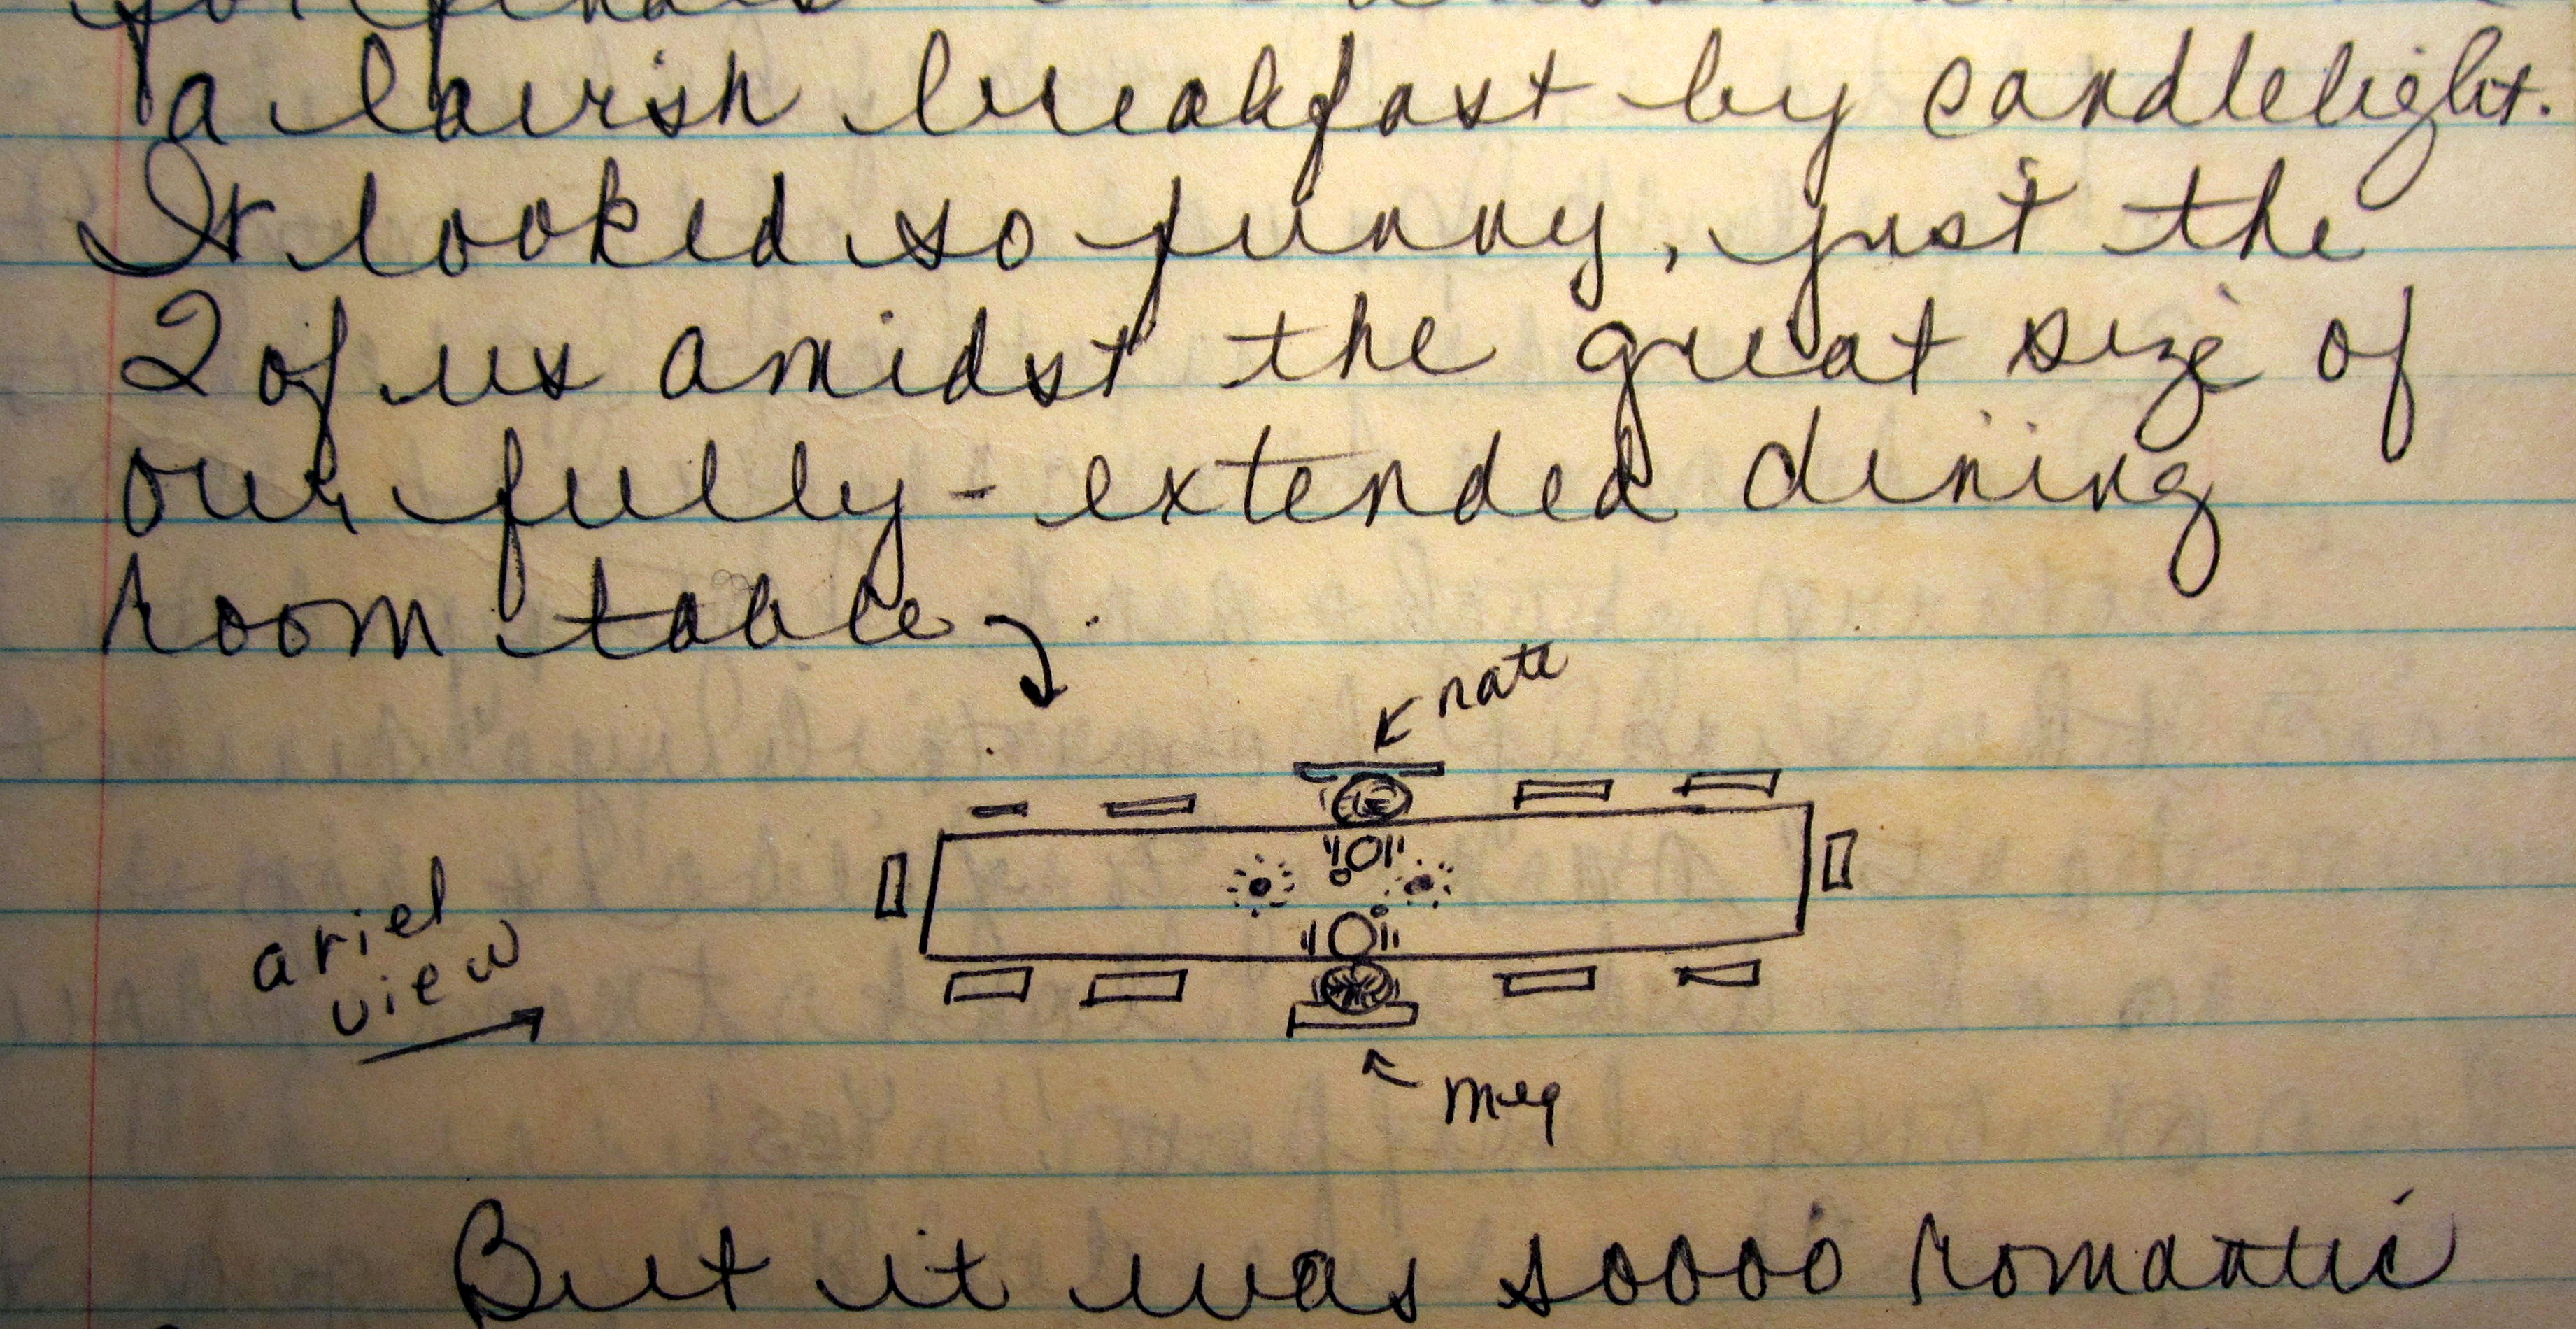 a lavish breakfast by candlelight.
It looked so funny, just the
2 of us amidst the great size of
our fully-extended dining
room table.
nate
ariel
view
meg
But it was soooo romantic